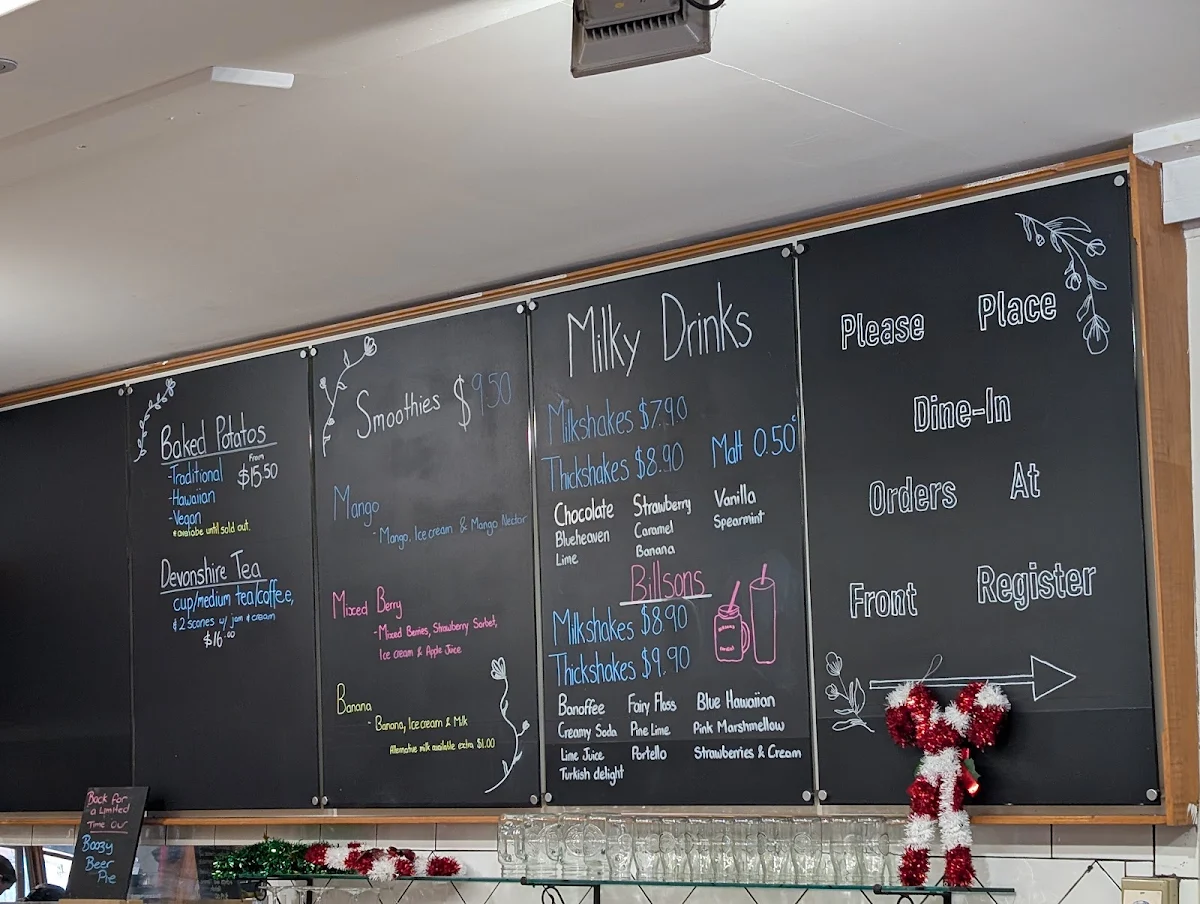 Baked Potatos
-Traditional
From
$15.50
-Hawaiian
-Vegan
*availabe until sold out.
Devonshire Tea
cup/medium tea/coffee,
& 2 scones w/ jam & cream
$16.00
Smoothies $9.50
Mango
- Mango, Ice cream & Mango Nectar
Mixed Berry
-Mixed Berries, Strawberry Sorbet,
Ice cream & Apple Juice
Banana
- Banana, Ice cream & Milk
Alternative milk available extra $1.00
Milky Drinks
Milkshakes $7.90
Thickshakes $8.90
Malt 0.50¢
Chocolate Strawberry Vanilla
Blueheaven Caramel Spearmint
Lime Banana
Billsons
Milkshakes $8.90
Thickshakes $9.90
Banoffee Fairy Floss Blue Hawaiian
Creamy Soda Pine Lime Pink Marshmellow
Lime Juice Portello Strawberries & Cream
Turkish delight
Please Place
Dine-In
Orders At
Front Register
Back for
a Limited
Time Our
Boozy
Beer
Pie